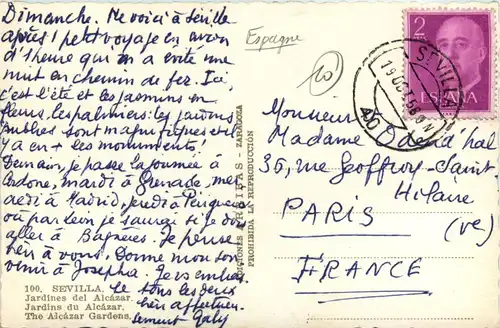 Dimanche. Me voici à Séville
après 1 petit voyage en avion
d'1 heure qui m'a évité une
nuit en chemin de fer. Ici,
c'est l'été et les jasmins en
fleurs, les palmiers: les jardins
publics sont magnifiques et il
y a en + les monuments!
Demain, je passe la journée à
mardi à Grenade, mer
credi à Madrid, jeudi à
où par je saurai si je dois
aller à Bagnères. Je pense
bien à vous. Donne mon sou
venir à Josepha. Je vs embras
se tous les deux
bien affectueu
sement Gaby
100. SEVILLA.
Jardines del Alcázar.
Jardins du Alcázar.
The Alcázar Gardens.
EDICIONES ARRIBAS - ZARAGOZA
PROHIBIDA LA REPRODUCCION
Espagne
10
2
ESPAÑA
SEVILLA
19 OCT 58
Monsieur
Madame
36, rue Geoffroy-Saint-
Hilaire
PARIS
(Ve)
FRANCE